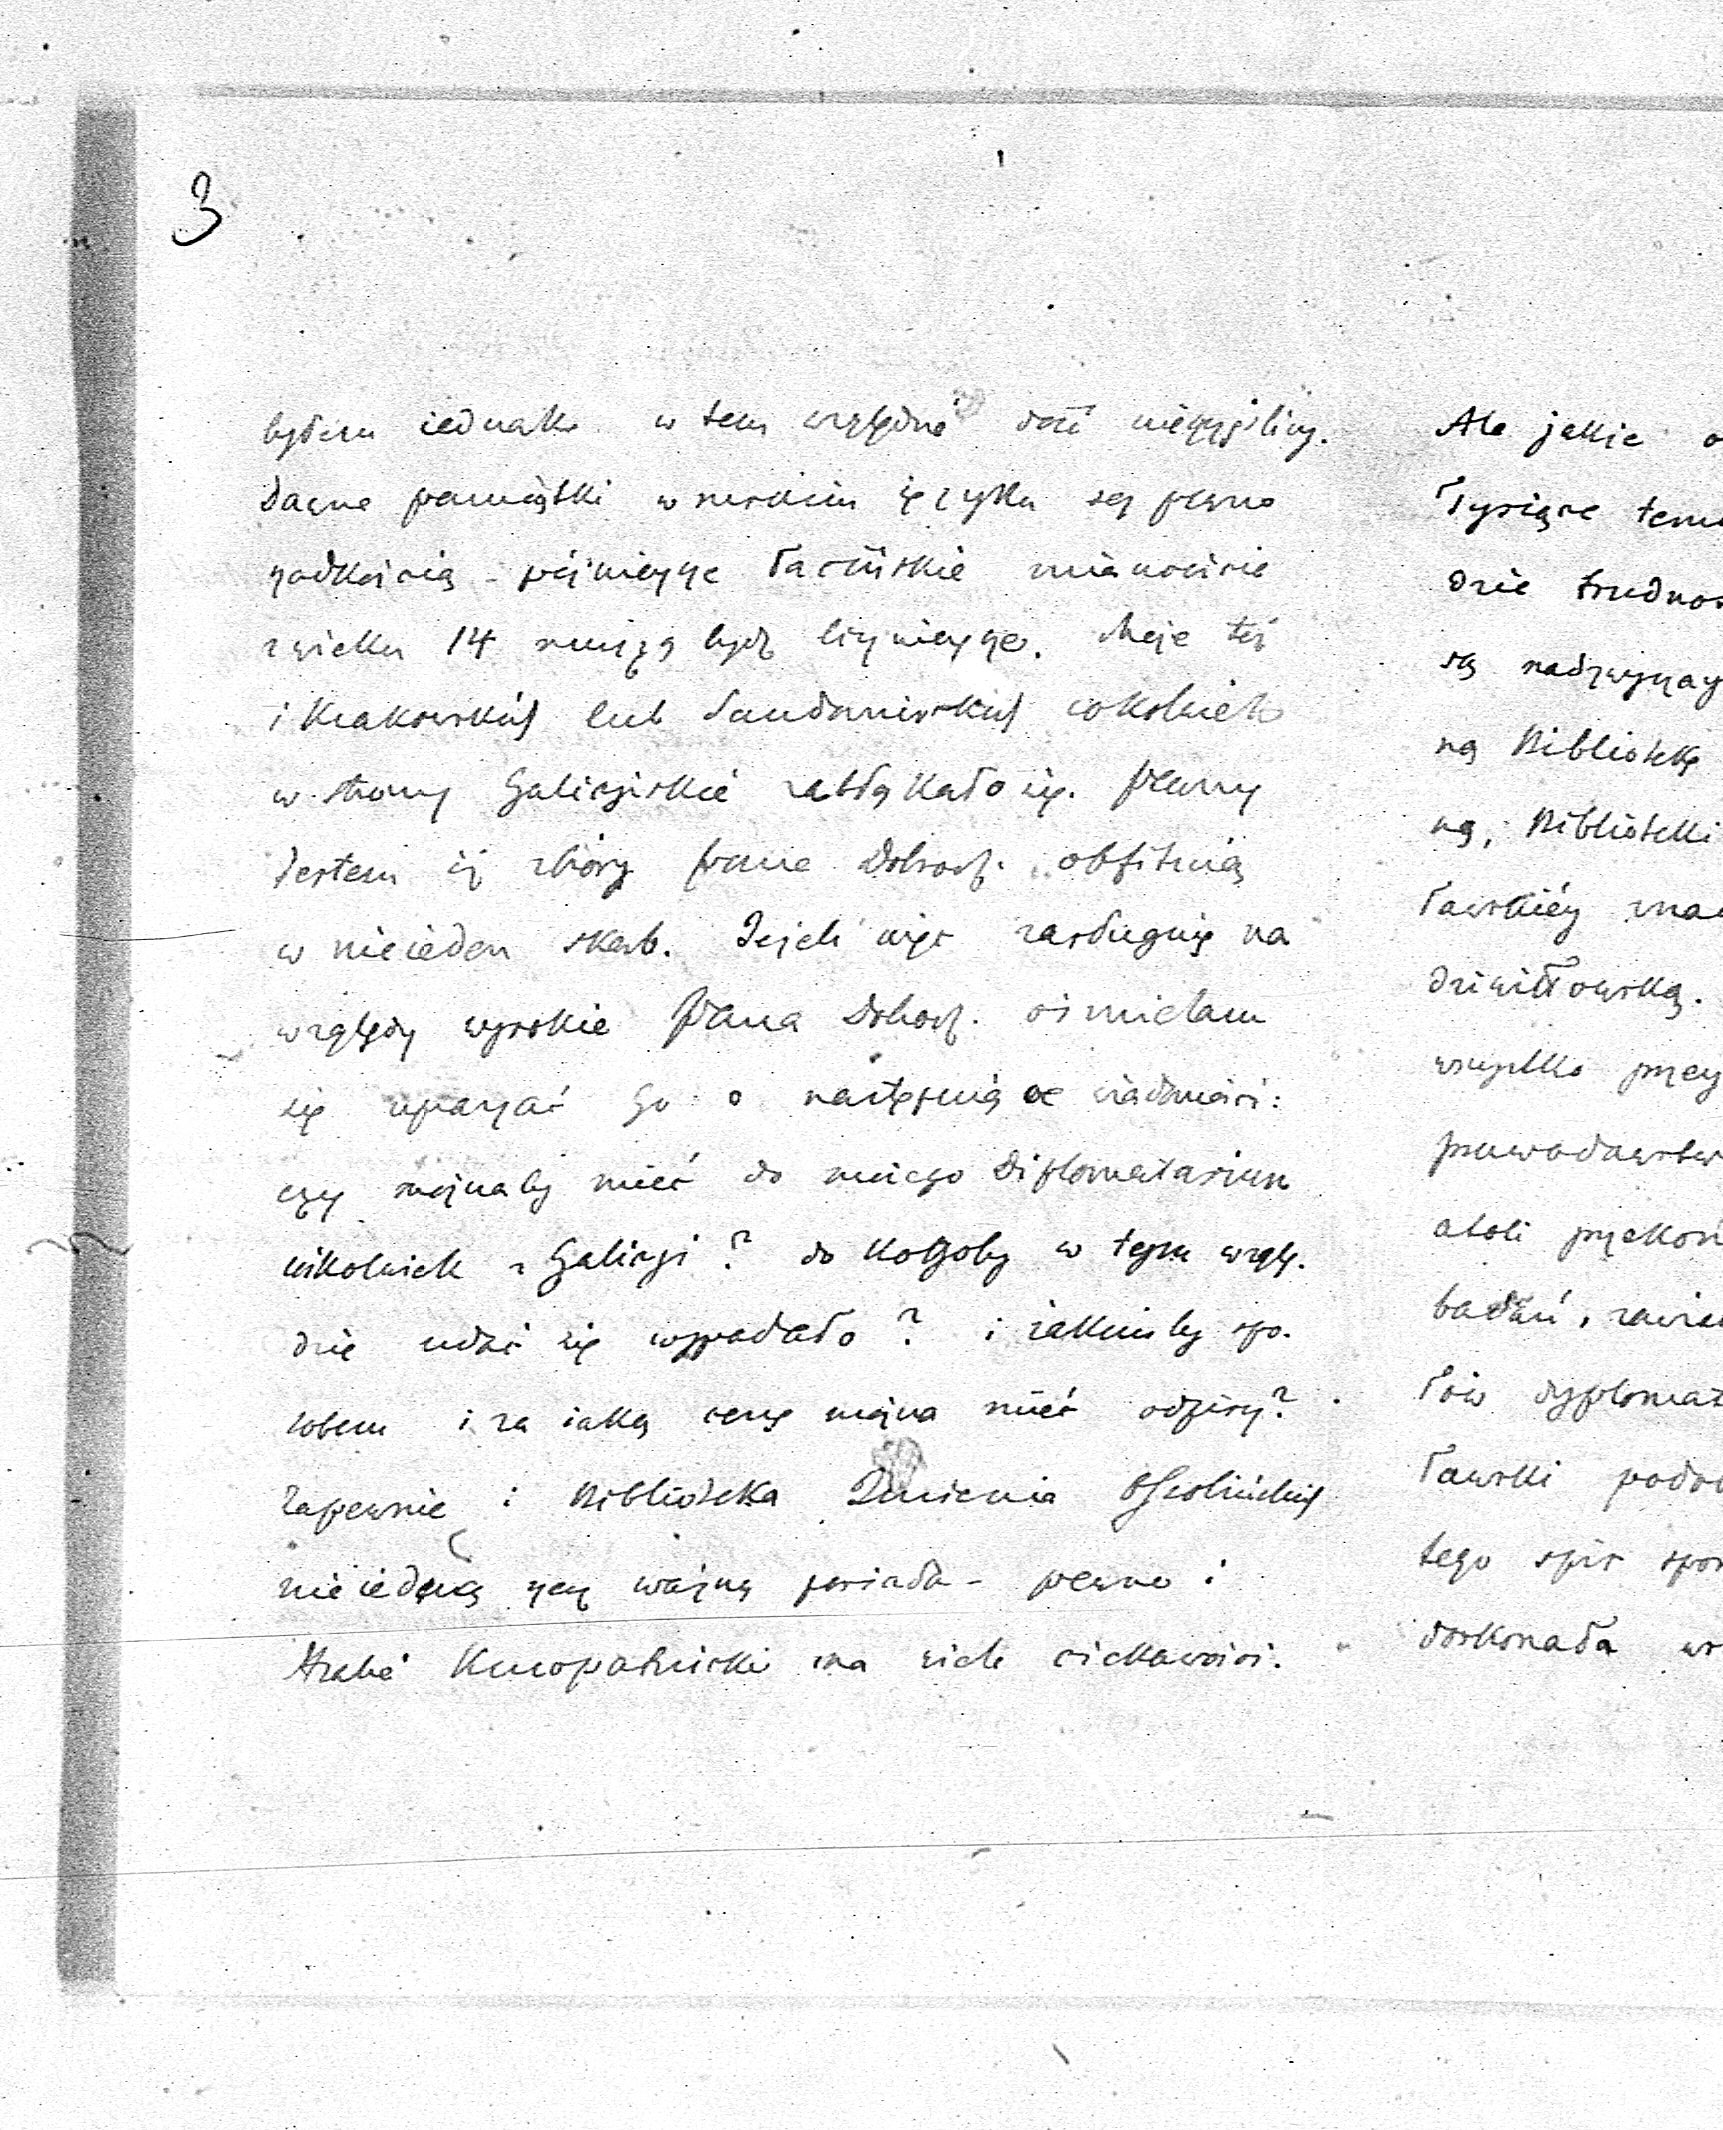 3
byłem iednak w tem względzie dość nieszczęśliwy.
dawne pamiątki w ruskim ięzyku są pewno
rzadkością - późnieysze łacińskie mianowicie
z wieku 14 muszą bydź licznieysze. Może też
i Krakowskich lub Sandomirskich cokolwiek
w strony Galicyiskie zabłąkało się. Pewny
Jestem iż zbiory Pana Dobrodz. obfituią
w nieieden skarb. Jeżeli więc zasługuię na
względy wysokie Pana Dobrodz. ośmielam
się upraszać Go o następuiące wiadomości:
czy możnaby mieć do moiego Diplomatarium
cokolwiek z Galicyi? do kogoby w tym wzglę-
dzie udać się wypadało? i iakimby spo-
sobem i za iaką cenę można mieć odpisy?
Zapewnie i Biblioteka Imienia Ossolińskich
nieiedną rzecz ważną posiada - pewno i
Hrabia Kuropatnicki ma wiele ciekawości.
Ale jakie
Tysiące
dzie trudno
są nadzwyczay
ną Bibliotekę
ną, Biblioteki
ławskiéy zna
dziwiłłowską.
wszystko przy
prawodawstw
atoli przekon
badań, zawie
łów dyplomat
ławski podo
tego spis spo
doskonała